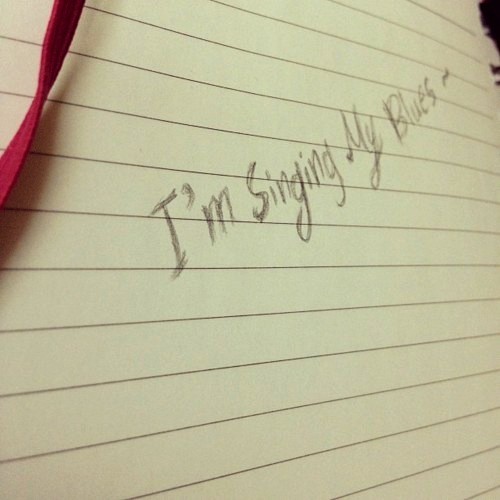 I'm Singing My Blues ~